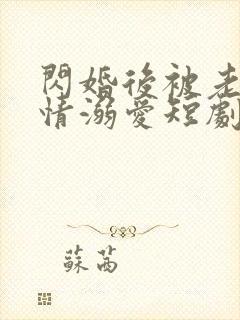 閃婚後被老
情溺愛短劇
蘇茜